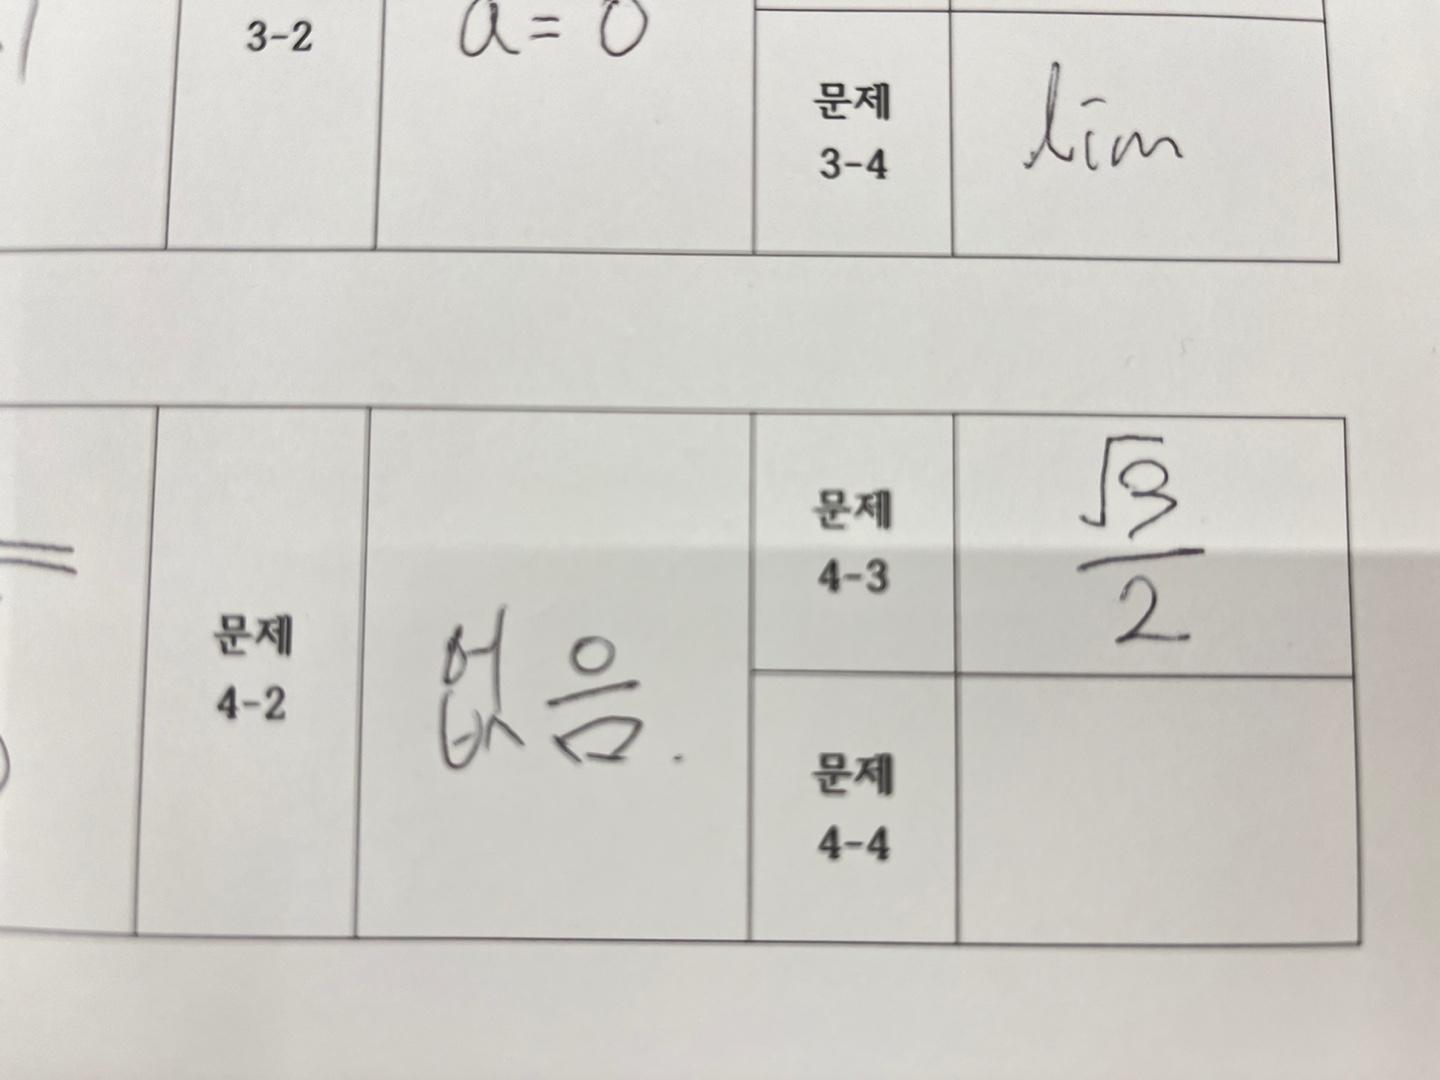 3-2
a = 0
문제
3-4
lim
문제
4-2
없음.
문제
4-3
√3
2
문제
4-4